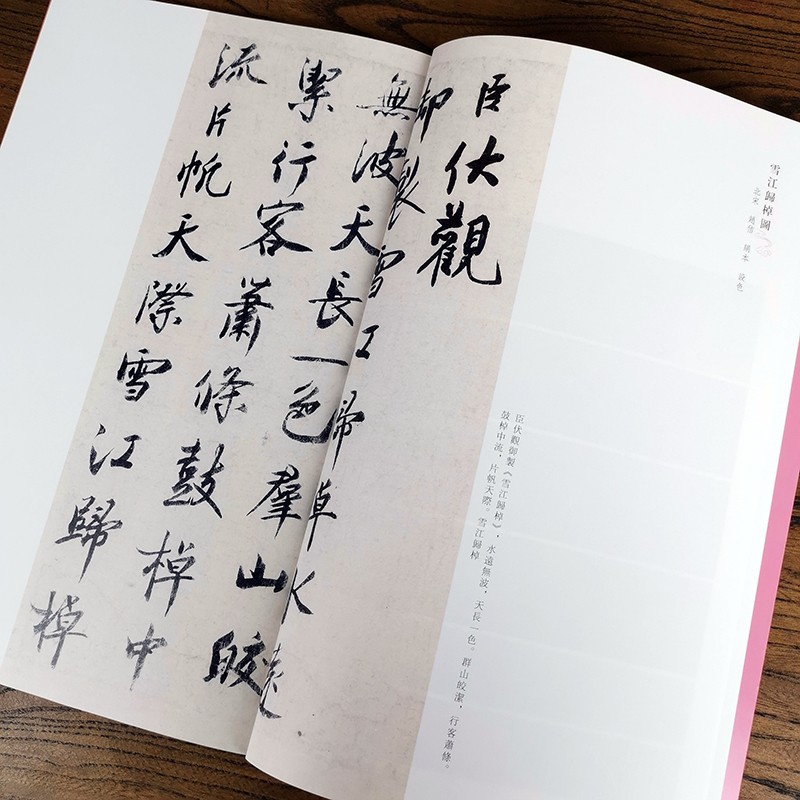 雪江歸棹圖
北宋 趙佶 絹本 設色
臣伏觀御製《雪江歸棹》，水遠無波，天長一色。群山皎潔，行客蕭條。
鼓棹中流，片帆天際。雪江歸棹
臣伏觀
御製雪江歸棹水遠
無波天長一色羣山皎
絜行客蕭條鼓棹中
流片帆天際雪江歸棹